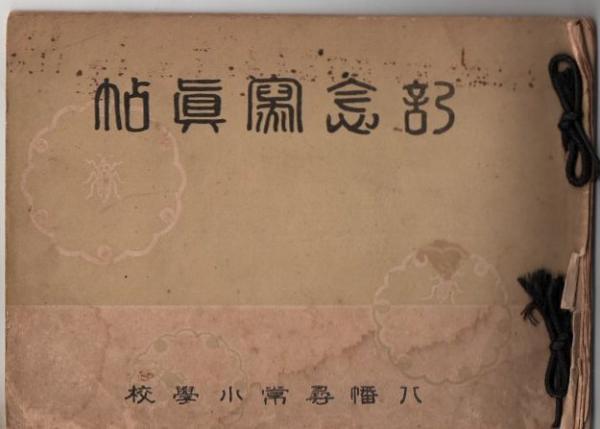 記念寫眞帖
八幡尋常小學校